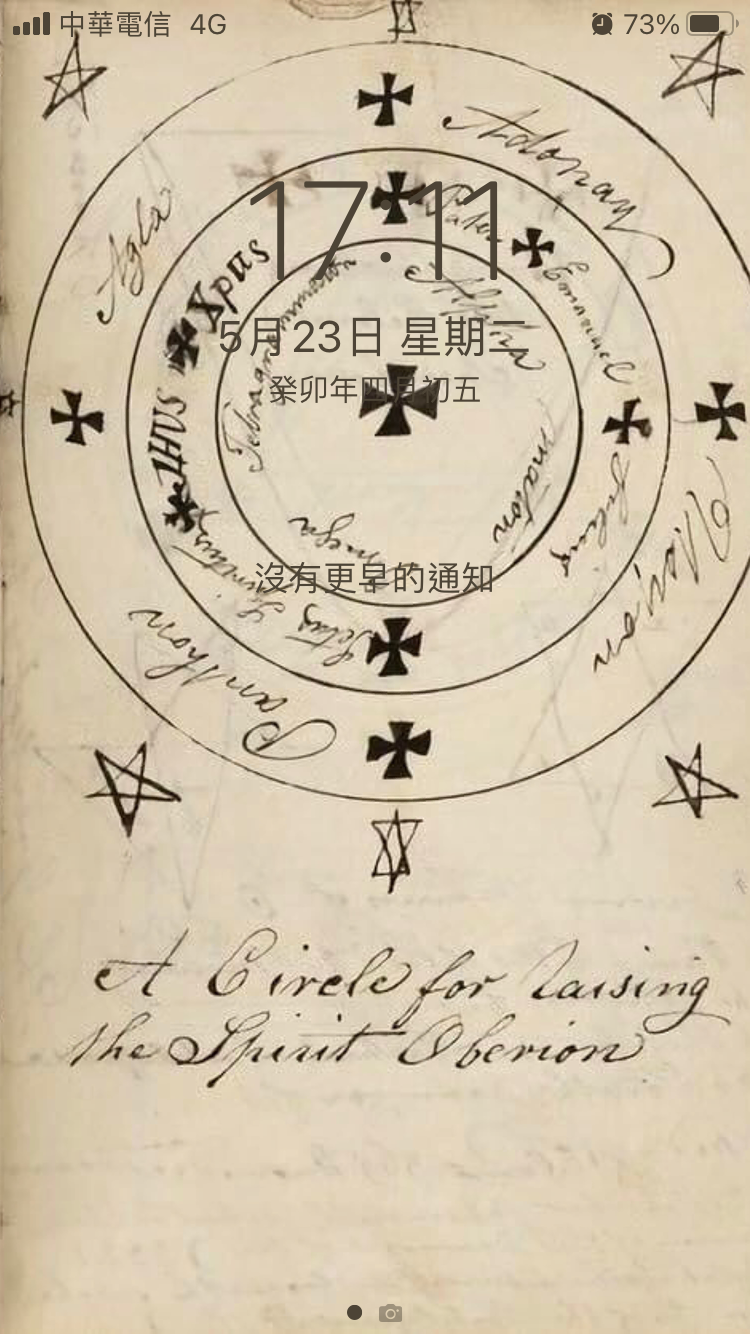 中華電信 4G 73%
Adonay
Agla
17:11
Pater
Xpus
Emanuel
5月23日 星期二
癸卯年四月初五
Alpha
IHVS
沒有更早的通知
Panthon
A Circle for Raising
the Spirit Oberion